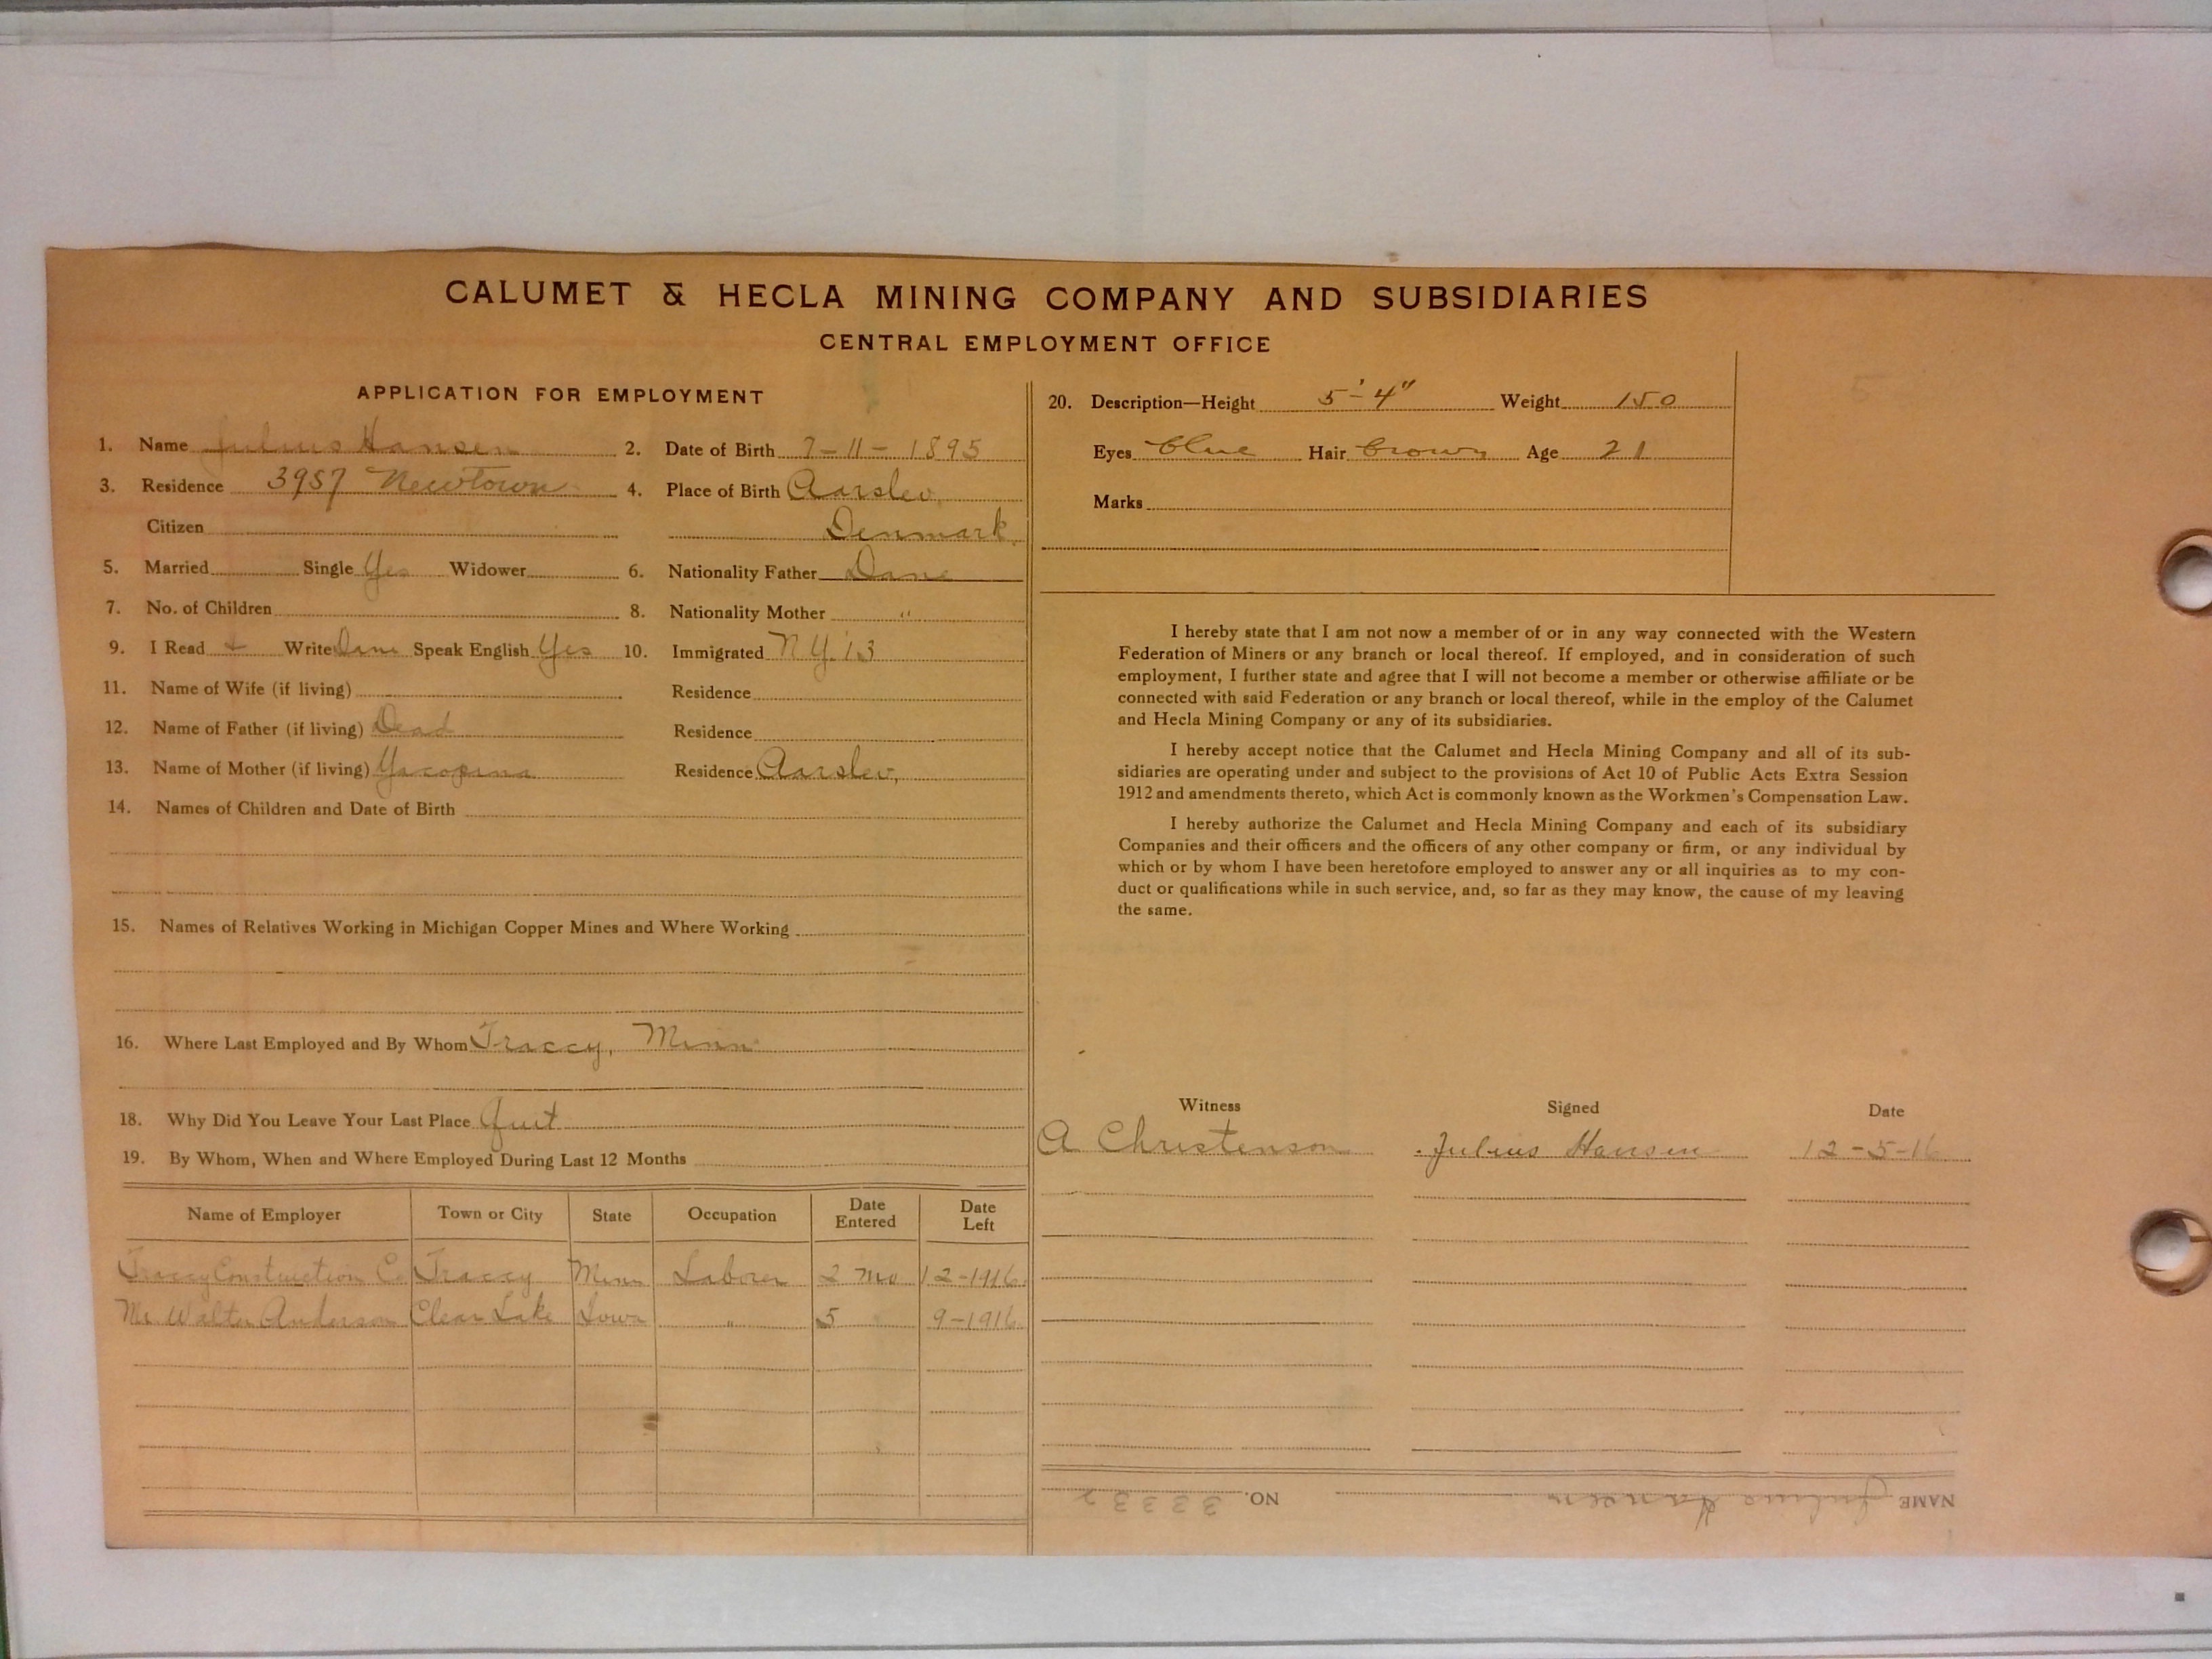 CALUMET & HECLA MINING COMPANY AND SUBSIDIARIES
CENTRAL EMPLOYMENT OFFICE
APPLICATION FOR EMPLOYMENT
1. Name Julius Hansen 2. Date of Birth 7-11-1895
3. Residence 3957 Newtown 4. Place of Birth Aarslev,
Citizen Denmark.
5. Married Single Yes Widower 6. Nationality Father Dane
7. No. of Children 8. Nationality Mother "
9. I Read + Write Dane Speak English Yes 10. Immigrated N.Y. '13
11. Name of Wife (if living) Residence
12. Name of Father (if living) Dead Residence
13. Name of Mother (if living) Yacopina Residence Aarslev,
14. Names of Children and Date of Birth
15. Names of Relatives Working in Michigan Copper Mines and Where Working
16. Where Last Employed and By Whom Traccy, Minn
18. Why Did You Leave Your Last Place Quit
19. By Whom, When and Where Employed During Last 12 Months
Name of Employer Town or City State Occupation Date Entered Date Left
Traccy Construction Co Traccy Minn Laborer 2 mo 12-1916
Mr. Walter Anderson Clear Lake Iowa " 5 " 9-1916
20. Description—Height 5'-4" Weight 150
Eyes blue Hair brown Age 21
Marks
I hereby state that I am not now a member of or in any way connected with the Western
Federation of Miners or any branch or local thereof. If employed, and in consideration of such
employment, I further state and agree that I will not become a member or otherwise affiliate or be
connected with said Federation or any branch or local thereof, while in the employ of the Calumet
and Hecla Mining Company or any of its subsidiaries.
I hereby accept notice that the Calumet and Hecla Mining Company and all of its sub-
sidiaries are operating under and subject to the provisions of Act 10 of Public Acts Extra Session
1912 and amendments thereto, which Act is commonly known as the Workmen's Compensation Law.
I hereby authorize the Calumet and Hecla Mining Company and each of its subsidiary
Companies and their officers and the officers of any other company or firm, or any individual by
which or by whom I have been heretofore employed to answer any or all inquiries as to my con-
duct or qualifications while in such service, and, so far as they may know, the cause of my leaving
the same.
Witness Signed Date
A Christenson Julius Hansen 12-5-16
NAME Julius Hansen NO. 33332